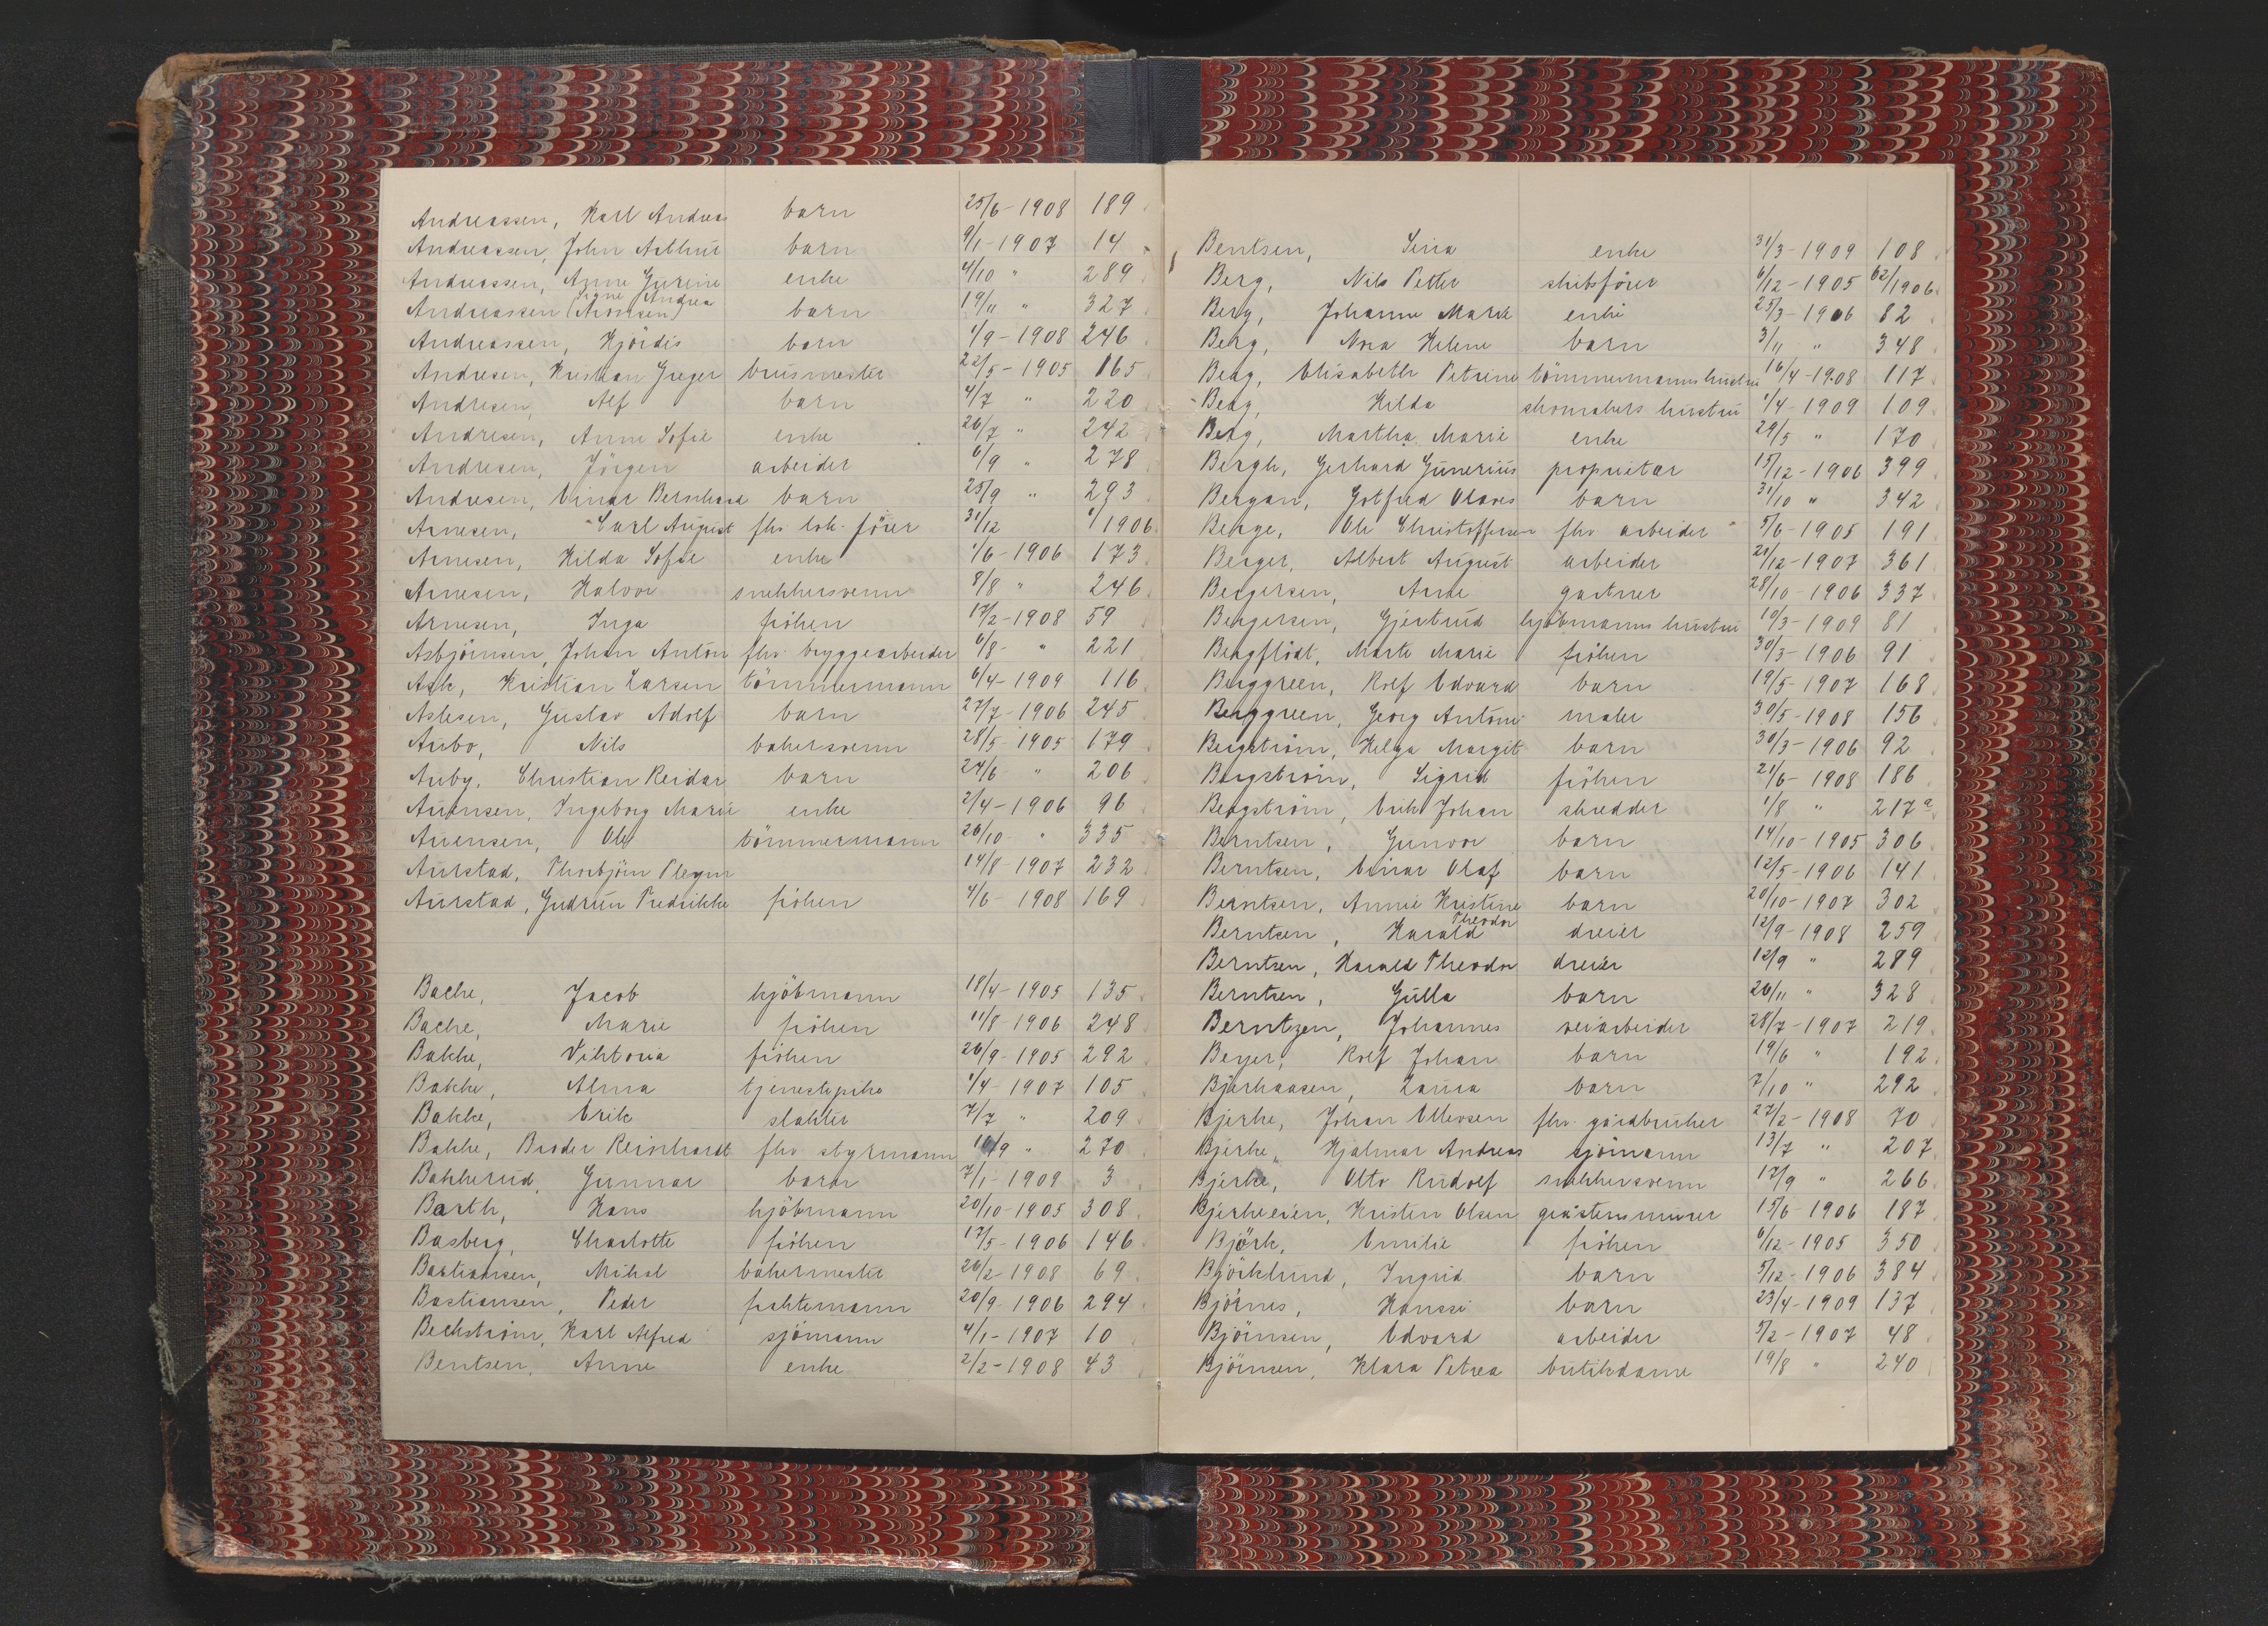 Andreassen, Karl Andreas barn 25/6-1908 189
Andreassen, John Arthur barn 9/1-1907 14
Andreassen, Anne Gurine enke 4/10 " 289
Andreassen (Aronsen) Signe Andrea barn 19/11 " 327
Andreassen, Hjördis barn 1/9-1908 246
Andresen, Kristian Greger brusmester 22/5-1905 165
Andresen, Alf barn 4/7 " 220
Andresen, Anne Sofie enke 26/7 " 242
Andresen, Jörgen arbeider 6/9 " 278
Andresen, Einar Bernhard barn 25/9 " 293
Arnesen, Carl August fhv. lok. förer 31/12 1/1906
Arnesen, Hilda Sofie enke 1/6-1906 173
Arnesen, Halvor snekkersvenn 8/8 " 246
Arnesen, Inga fröken 17/2-1908 59
Asbjörnsen, Johan Anton fhv. bryggearbeider 6/8- " 221
Ask, Kristian Larsen tömmermann 6/4-1909 116
Aslesen, Gustav Adolf barn 27/7-1906 245
Aubo, Nils bakersvenn 28/5-1905 179
Auby, Christian Reidar barn 24/6 " 206
Auensen, Ingeborg Marie enke 2/4-1906 96
Auensen, Ole tömmermann 26/10- " 335
Aurstad, Thorbjörn Pleym 14/8-1907 232
Aurstad, Gudrun Fredrikke fröken 4/6-1908 169
Bache, Jacob kjöbmann 18/4-1905 135
Bache, Marie fröken 11/8-1906 248
Bakke, Viktoria fröken 26/9-1905 292
Bakke, Alma tjenestepike 1/4-1907 105
Bakke, Erik slakter 7/7 " 209
Bakke, Broder Reinhardt fhv styrmann 10/9 " 270
Bakkerud, Gunnar barn 7/1-1909 3
Barth, Hans kjöbmann 20/10-1905 308
Basberg, Charlotte fröken 17/5-1906 146
Bastiansen, Mikal bakermester 26/2-1908 69
Bastiansen, Peder fraktemann 20/9-1906 294
Beckström, Karl Alfred sjömann 4/1-1907 10
Bentsen, Anne enke 2/2-1908 43
Bentsen, Sina enke 31/3-1909 108
Berg, Nils Petter skibsförer 6/12-1905 62/1906
Berg, Johanne Marie enke 25/3-1906 82
Berg, Nora Helene barn 3/11 " 348
Berg, Elisabeth Petrine tömmermanns hustru 16/4-1908 117
Berg, Hilda skomakers hustru 1/4-1909 109
Berg, Martha Marie enke 29/5 " 170
Bergh, Gerhard Gunerius proprietær 15/12-1906 399
Bergan, Gotfred Olaves barn 31/10 " 342
Berge, Ole Christoffersen fhv arbeider 5/6-1905 191
Berger, Albert August arbeider 21/12-1907 361
Bergersen, Arne gartner 28/10-1906 337
Bergersen, Gjertrud kjöbmanns hustru 10/3-1909 81
Bergflödt, Marte Marie fröken 30/3-1906 91
Berggreen, Rolf Edvard barn 19/5-1907 168
Berggreen, Georg Antoni maler 30/5-1908 156
Bergström, Helga Margit barn 30/3-1906 92
Bergström, Sigrid fröken 21/6-1908 186
Bergström, Erik Johan skredder 1/8 " 217a
Berntsen, Gunvor barn 14/10-1905 306
Berntsen, Einar Olaf barn 12/5-1906 141
Berntsen, Annie Kristine barn 20/10-1907 302
Berntsen, Harald Theodor dreier 12/9-1908 259
Berntsen, Harald Theodor dreier 12/9 " 289
Berntsen, Gulla barn 26/11 " 328
Berntzen, Johannes veiarbeider 28/7-1907 219
Beyer, Rolf Johan barn 19/6 " 192
Bjerkaasen, Laura barn 7/10 " 292
Bjerke, Johan Ellevsen fhv. gårdbruker 27/2-1908 70
Bjerke, Hjalmar Andreas sjömann 13/7 " 207
Bjerke, Otto Rudolf snekkersvenn 17/9 " 266
Bjerkeeien, Kristen Olsen gråstensmurer 15/6-1906 187
Björk, Emilie fröken 6/12-1905 350
Björklund, Ingrid barn 5/12-1906 384
Björnes, Hanssi barn 23/4-1909 137
Björnsen, Edvard arbeider 5/2-1907 48
Björnsen, Klara Petrea butikdame 19/8 " 240